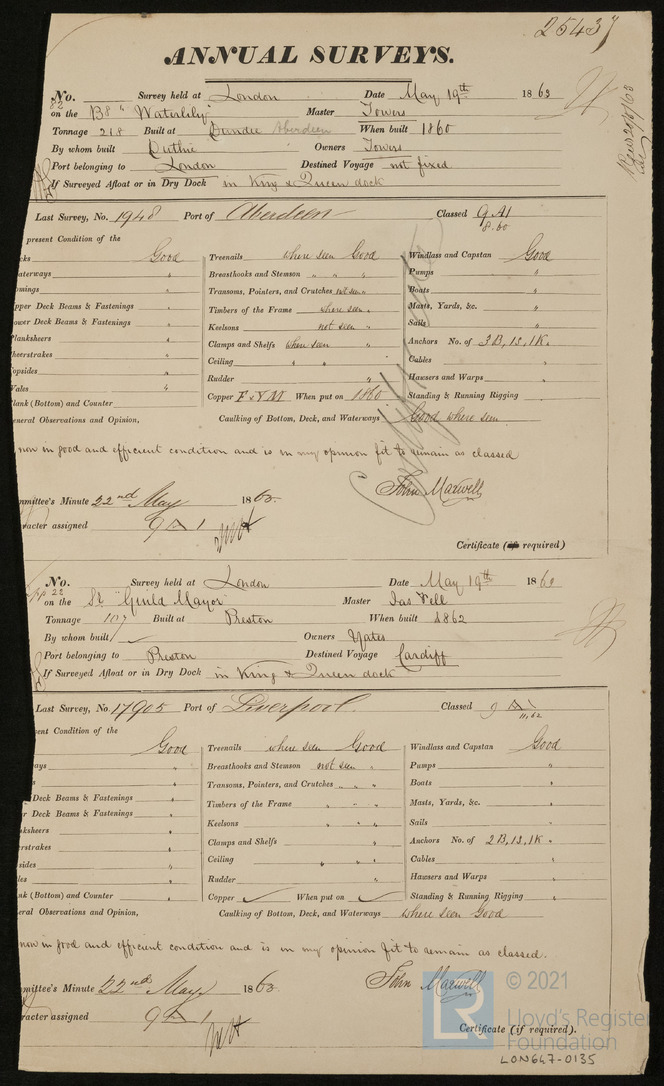 25437
ANNUAL SURVEYS.
No. 82 Survey held at London Date May 19th 1863
on the Bk "Waterlily" Master Towers
Tonnage 268 Built at Dundee Aberdeen When built 1860
By whom built Duthie Owners Towers
Port belonging to London Destined Voyage not fixed
If Surveyed Afloat or in Dry Dock in King & Queen dock
Last Survey, No. 1948 Port of Aberdeen Classed 9 A1
8.60
present Condition of the
Good Treenails where seen Good Windlass and Capstan Good
aterways " Breasthooks and Stemson " " " Pumps "
omings " Transoms, Pointers, and Crutches not seen " Boats "
pper Deck Beams & Fastenings " Timbers of the Frame where seen " Masts, Yards, &c. "
ower Deck Beams & Fastenings " Keelsons not seen " Sails "
lanksheers " Clamps and Shelfs where seen " Anchors No. of 3B, 1S, 1K "
heerstrakes " Ceiling " " Cables "
opsides " Rudder " Hawsers and Warps "
Wales " Copper F & YM When put on 1860 Standing & Running Rigging "
lank (Bottom) and Counter "
eneral Observations and Opinion, Caulking of Bottom, Deck, and Waterways Good where seen
now in good and efficient condition and is in my opinion fit to remain as classed
John Maxwell
mmittee's Minute 22nd May 1863
racter assigned 9 A 1
Certificate (if required)
No. 22 Survey held at London Date May 19th 1863
on the Sr "Guild Mayor" Master Jas Fell
Tonnage 107 Built at Preston When built 1862
By whom built Owners Yates
Port belonging to Preston Destined Voyage Cardiff
If Surveyed Afloat or in Dry Dock in King & Queen dock
Last Survey, No. 17905 Port of Liverpool Classed 9 A1
11,62
sent Condition of the
Good Treenails where seen Good Windlass and Capstan Good
ays " Breasthooks and Stemson not seen " Pumps "
s " Transoms, Pointers, and Crutches " " " Boats "
Deck Beams & Fastenings " Timbers of the Frame " " " Masts, Yards, &c. "
r Deck Beams & Fastenings " Keelsons " " Sails "
ksheers " Clamps and Shelfs " Anchors No. of 2B, 1S, 1K "
erstrakes " Ceiling " " " Cables "
sides " Rudder " Hawsers and Warps "
les " Copper When put on Standing & Running Rigging "
nk (Bottom) and Counter "
eral Observations and Opinion, Caulking of Bottom, Deck, and Waterways where seen Good
now in good and efficient condition and is in my opinion fit to remain as classed.
John Maxwell
mmittee's Minute 22nd May 1863
racter assigned 9 A 1
Certificate (if required).
© 2021
LR
Lloyd's Register
Foundation
LON647-0135